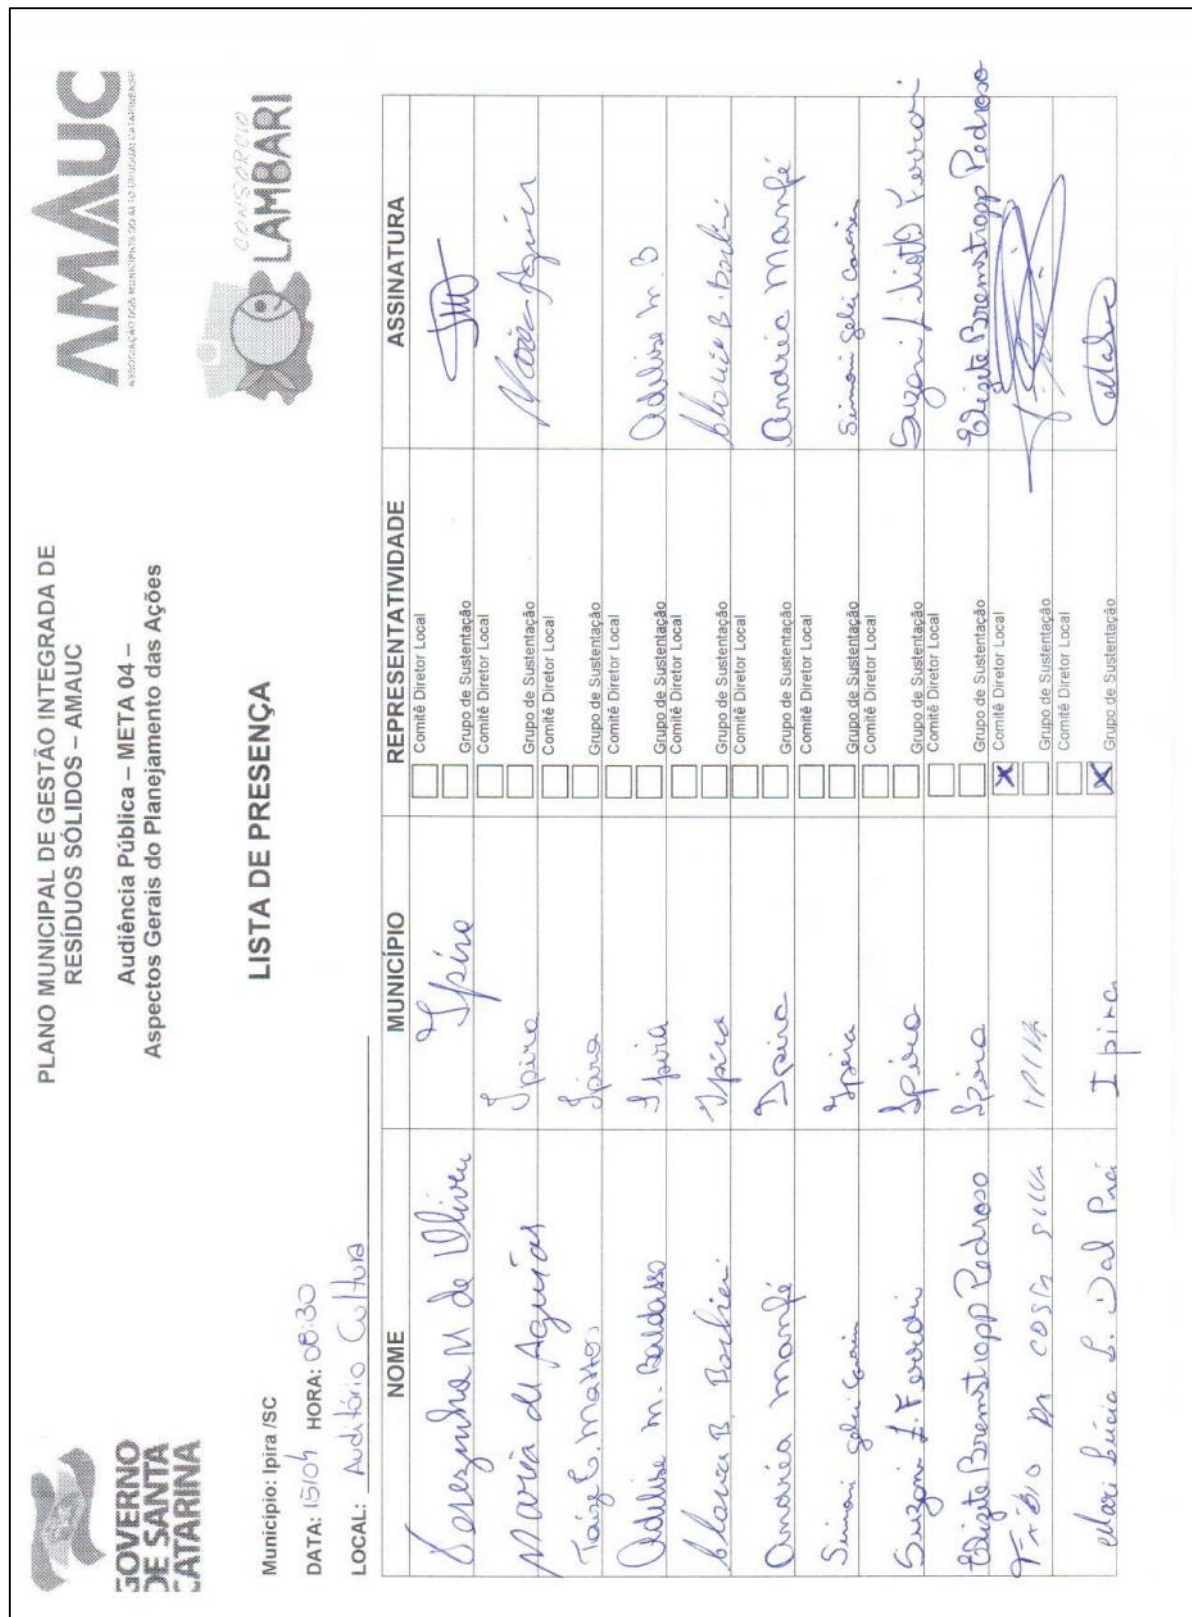 GOVERNO
DE SANTA
CATARINA
PLANO MUNICIPAL DE GESTÃO INTEGRADA DE
RESÍDUOS SÓLIDOS – AMAUC
Audiência Pública – META 04 –
Aspectos Gerais do Planejamento das Ações
AMAUC
ASSOCIAÇÃO DOS MUNICÍPIOS DO ALTO URUGUAI CATARINENSE
CONSÓRCIO
LAMBARI
LISTA DE PRESENÇA
Município: Ipira /SC
DATA: 15/04 HORA: 08:30
LOCAL: Auditório Cultura
NOME MUNICÍPIO REPRESENTATIVIDADE ASSINATURA
Terezinha M de Ipira Comitê Diretor Local
Grupo de Sustentação
Maria de Aguiar Ipira Comitê Diretor Local
Grupo de Sustentação Maria Aguiar
Taíze C. Mattos Ipira Comitê Diretor Local
Grupo de Sustentação
Adelise M. Baldasso Ipira Comitê Diretor Local
Grupo de Sustentação Adelise M. B
B. Ipira Comitê Diretor Local
Grupo de Sustentação B.
Andréia Manfé Ipira Comitê Diretor Local
Grupo de Sustentação Andréia Manfé
Simoni Ipira Comitê Diretor Local
Grupo de Sustentação Simoni
Suzani L. Ferrari Ipira Comitê Diretor Local
Grupo de Sustentação Suzani Ferrari
Elizete Bremstropp Pedroso Ipira Comitê Diretor Local
Grupo de Sustentação Elizete Bremstropp Pedroso
DA COSTA SILVA IPIRA X Comitê Diretor Local
Grupo de Sustentação
Mari Lúcia L. Dal Prá Ipira Comitê Diretor Local
X Grupo de Sustentação